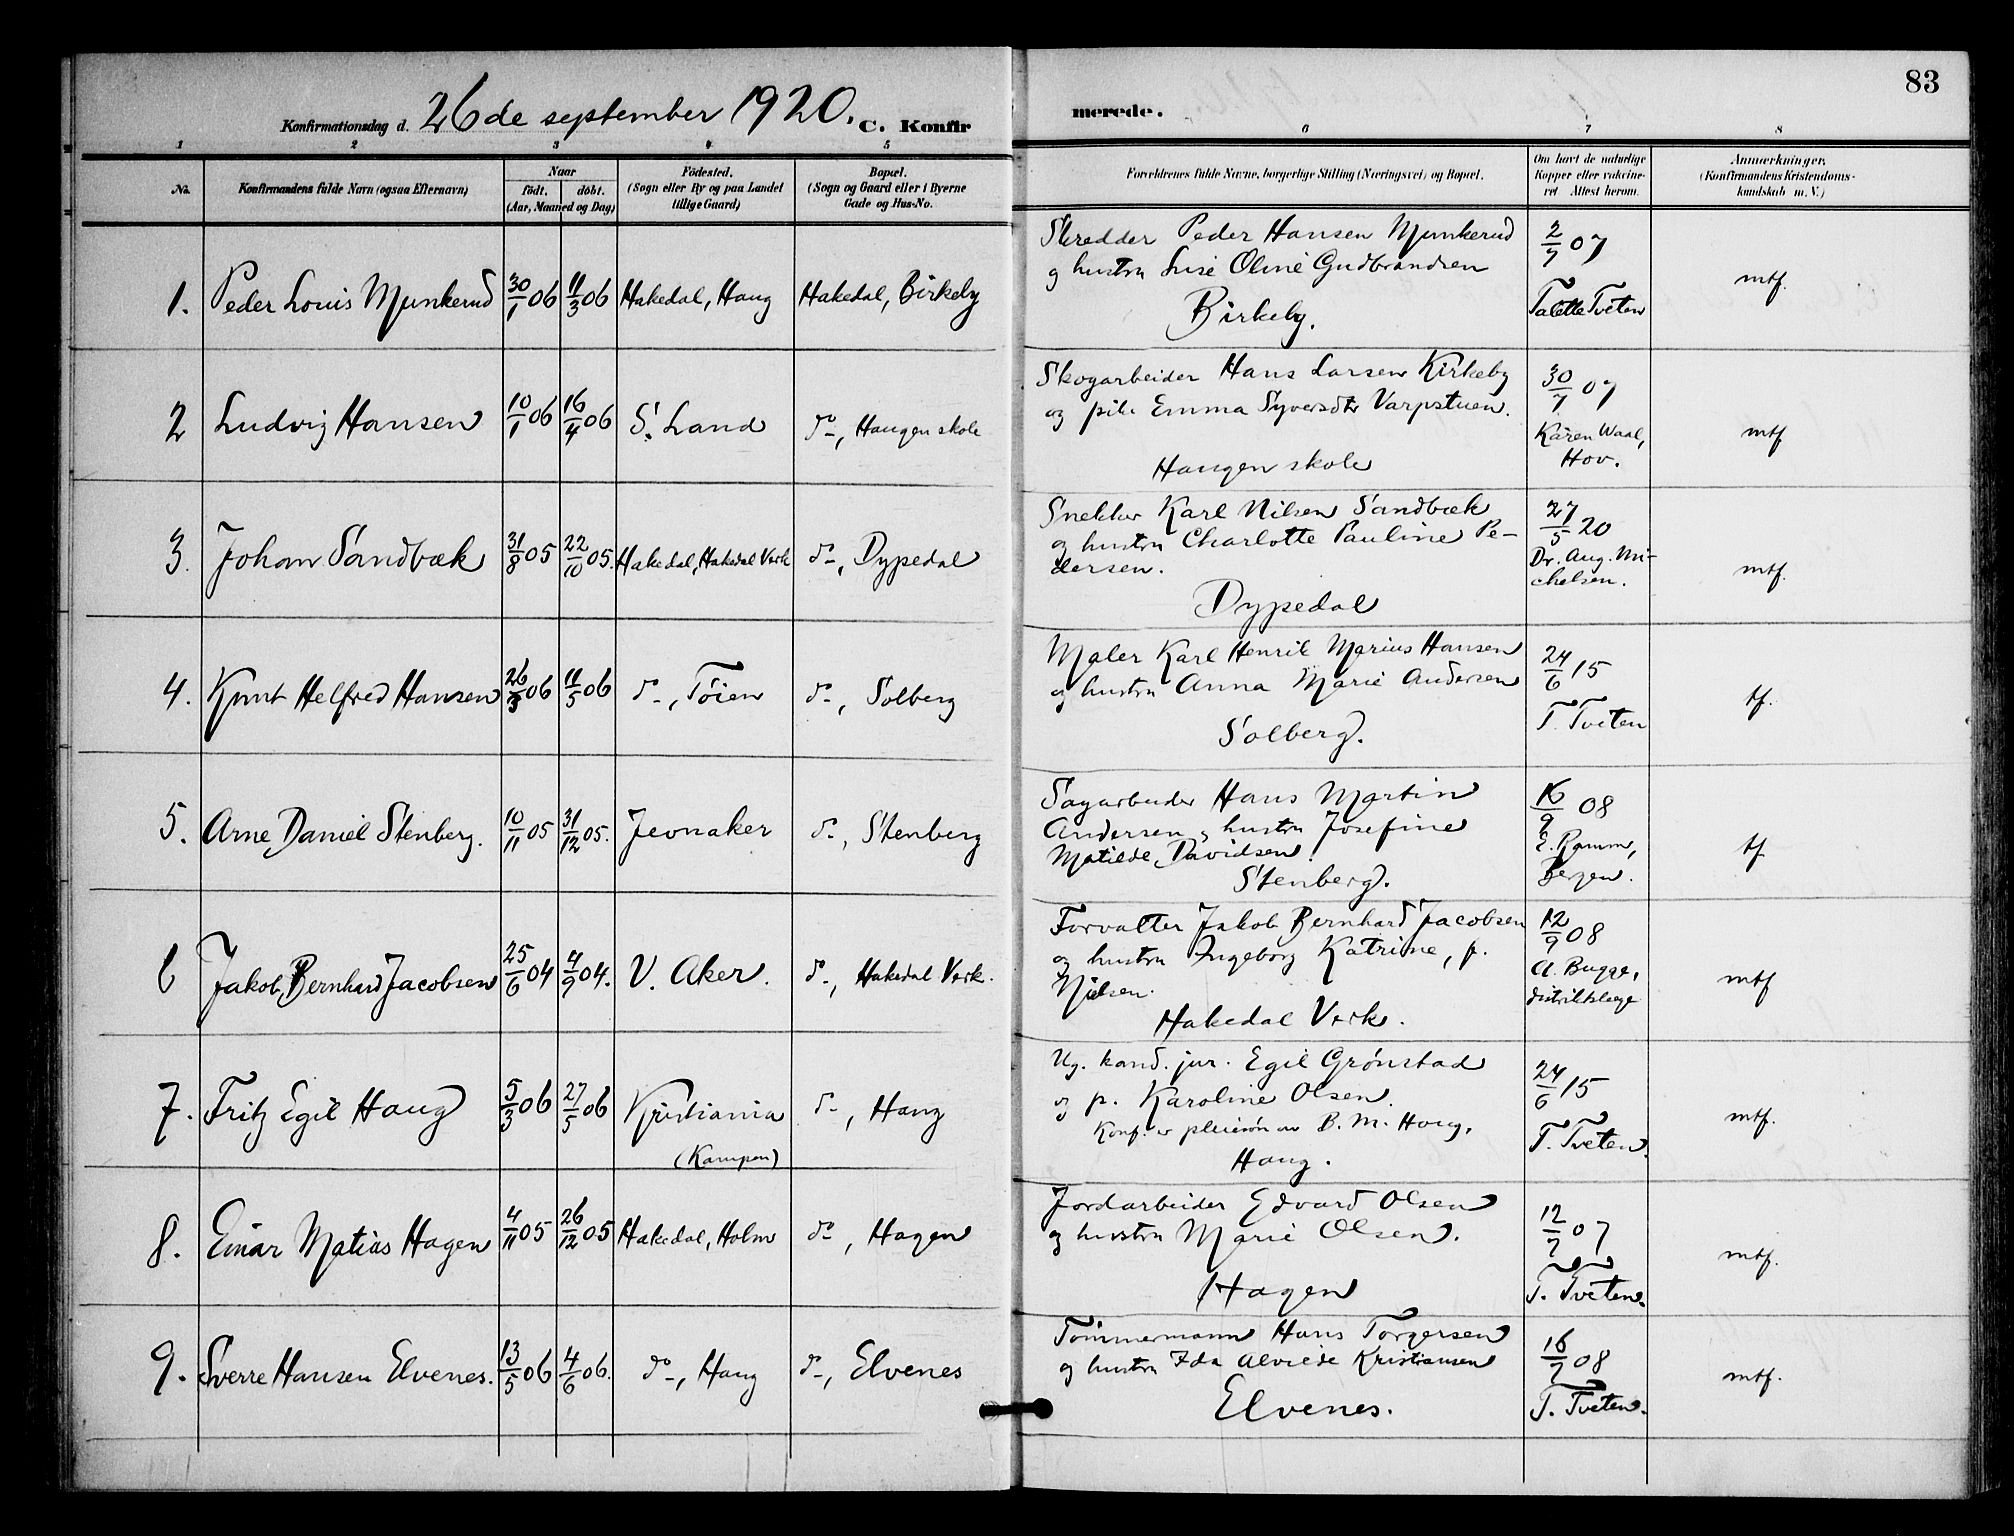 Konfirmationsdag d. 26de september 1920. C. Konfir
merede.
83
1 2 3 4 5
6 7 8
No.
Konfirmandens fulde Navn (ogsaa Efternavn)
Naar
födt. döbt.
(Aar, Maaned og Dag)
Födested.
(Sogn eller By og paa Landet
tillige Gaard)
Bopæl.
(Sogn og Gaard eller i Byerne
Gade og Hus-No.
Forældrenes fulde Navne, borgerlige Stilling (Næringsvei) og Bopæl.
Om havt de naturlige
Kopper eller vakcine-
ret Attest herom.
Anmærkninger,
(Konfirmandens Kristendoms-
kundskab m. V.)
1. Peder Louis Munkerud 30/1 06 11/3 06 Hakedal, Haug Hakedal, Birkeby
Skredder Peder Hansen Munkerud
og hustru Lise Oline Gudbrandsen
Birkeby.
2/7 07
Talette Tveten
mtf.
2 Ludvig Hansen 10/1 06 16/4 06 S. Land do, Haugen skole
Skogarbeider Hans Larsen Kirkeby
og pike Emma Syversdtr Varpstuen.
Haugen skole
30/7 07
Karen Waal,
Hov.
mtf
3. Johan Sandbæk 31/8 05 22/10 05. Hakedal, Hakedal Verk do, Dypedal
Snekker Karl Nilsen Sandbæk
og hustru Charlotte Pauline Pe-
dersen.
Dypedal
27/5 20
Dr. Aug. Mi-
chelsen.
mtf.
4. Knut Helfred Hansen 26/3 06 11/5 06 do, Töien do, Solberg
Maler Karl Henrik Marius Hansen
og hustru Anna Marie Andersen
Solberg.
24/6 15
T. Tveten
tf.
5. Arne Daniel Stenberg. 10/11 05 31/12 05. Jevnaker do, Stenberg
Sagarbeider Hans Martin
Andersen og hustru Josefine
Matilde Davidsen.
Stenberg.
16/9 08
E. Ramm,
Bergen.
tf
6 Jakob Bernhard Jacobsen 25/6 04 4/9 04. V. Aker. do, Hakedal Verk.
Forvalter Jakob Bernhard Jacobsen
og hustru Ingeborg Katrine, f.
Nielsen.
Hakedal Verk.
12/9 08
A. Bugge,
distriktslæge
mtf
7. Fritz Egil Haug 5/3 06 27/5 06 Kristiania do, Haug
(Kampen)
Ug. kand. jur. Egil Grønstad
og p. Karoline Olsen.
Konf. er pleiesön av B. M. Haug,
Haug.
24/6 15
T. Tveten.
mtf.
8. Einar Matias Hagen 4/11 05 26/12 05 Hakedal, Holm do, Hagen
Jordarbeider Edvard Olsen
og hustru Marie Olsen.
Hagen
12/7 07
T. Tveten.
mtf.
9. Sverre Hansen Elvenes. 13/5 06 4/6 06. do, Haug do, Elvenes
Tömmermann Hans Torgersen
og hustru Ida Alvilde Kristiansen
Elvenes.
16/7 08
T. Tveten.
mtf.